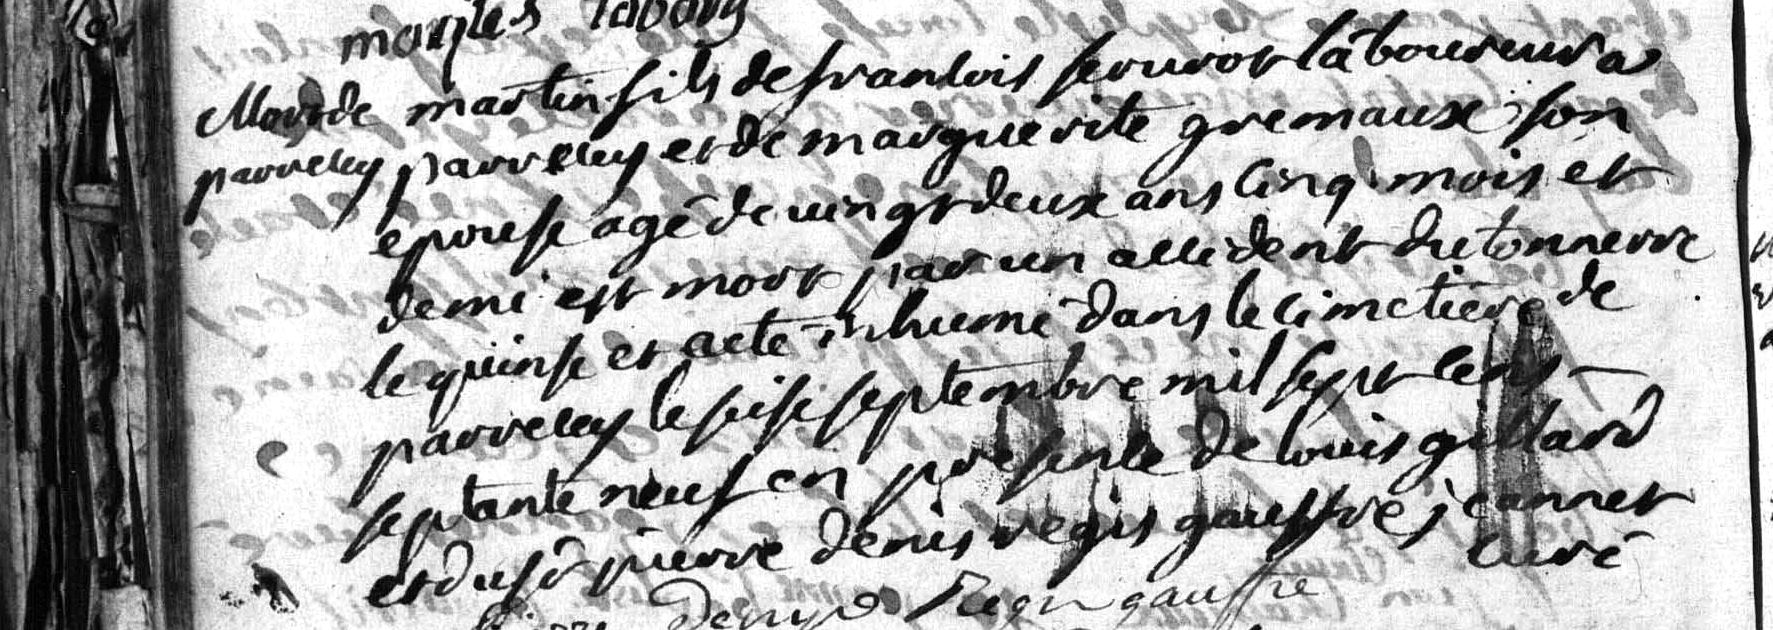 Mort de
parrecey
martin fils de francois serurot laboureur a
parrecey et de marguerite gremaux son
epouse agé de uingt deux ans cinq mois et
demi est mort par un accident du tonnerre
le quinse et a eté inhumé dans le cimetière de
parrecey le seise septembre mil sept cens
septante neuf en presence de louis gillard
et du sr pierre denis regis gauffre jeannet
curé
Denys Regis gauffre